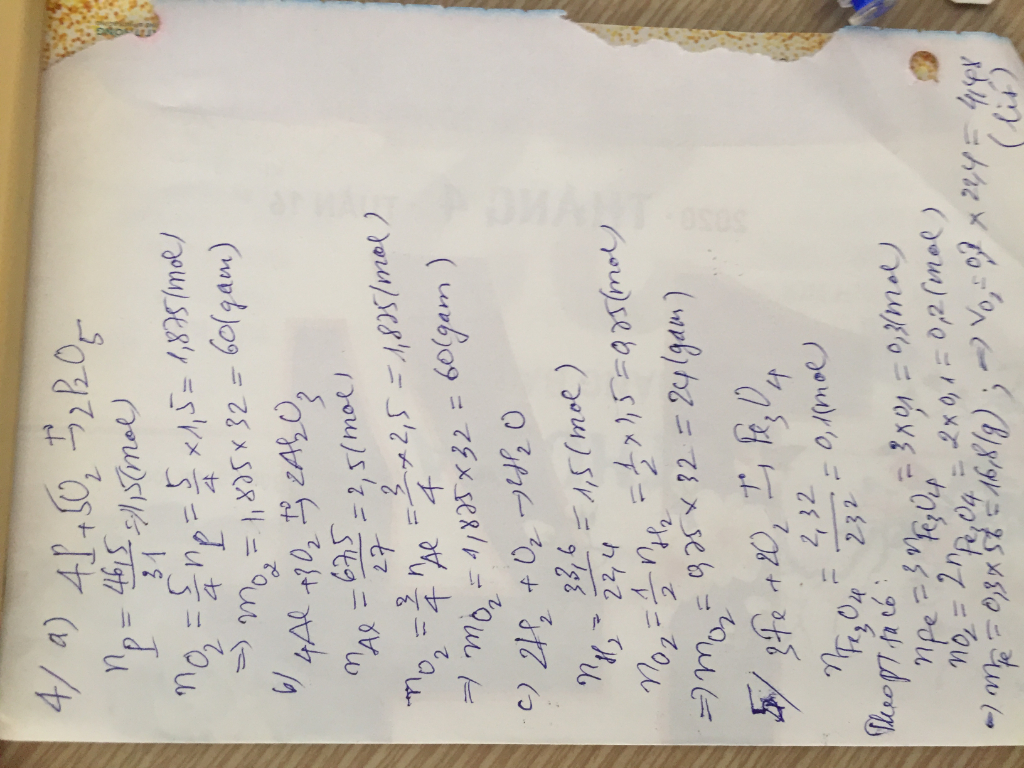 4/ a) 4P + 5O2 t°→ 2P2O5
nP = 46,5/31 = 1,5 (mol)
nO2 = 5/4 nP = 5/4 × 1,5 = 1,875 (mol)
=> mO2 = 1,875 × 32 = 60 (gam)
b) 4Al + 3O2 t°→ 2Al2O3
nAl = 67,5/27 = 2,5 (mol)
nO2 = 3/4 nAl = 3/4 × 2,5 = 1,875 (mol)
=> mO2 = 1,875 × 32 = 60 (gam)
c) 2H2 + O2 → 2H2O
nH2 = 33,6/22,4 = 1,5 (mol)
nO2 = 1/2 nH2 = 1/2 × 1,5 = 0,75 (mol)
=> mO2 = 0,75 × 32 = 24 (gam)
5/ 3Fe + 2O2 t°→ Fe3O4
nFe3O4 = 2,32/232 = 0,1 (mol)
Theo pt ta có:
nFe = 3nFe3O4 = 3 × 0,1 = 0,3 (mol)
nO2 = 2nFe3O4 = 2 × 0,1 = 0,2 (mol)
=> mFe = 0,3 × 56 = 16,8 (g) ; => VO2 = 0,2 × 22,4 = 4,48
(lít)
2020 - THÁNG 4 - TUẦN 16